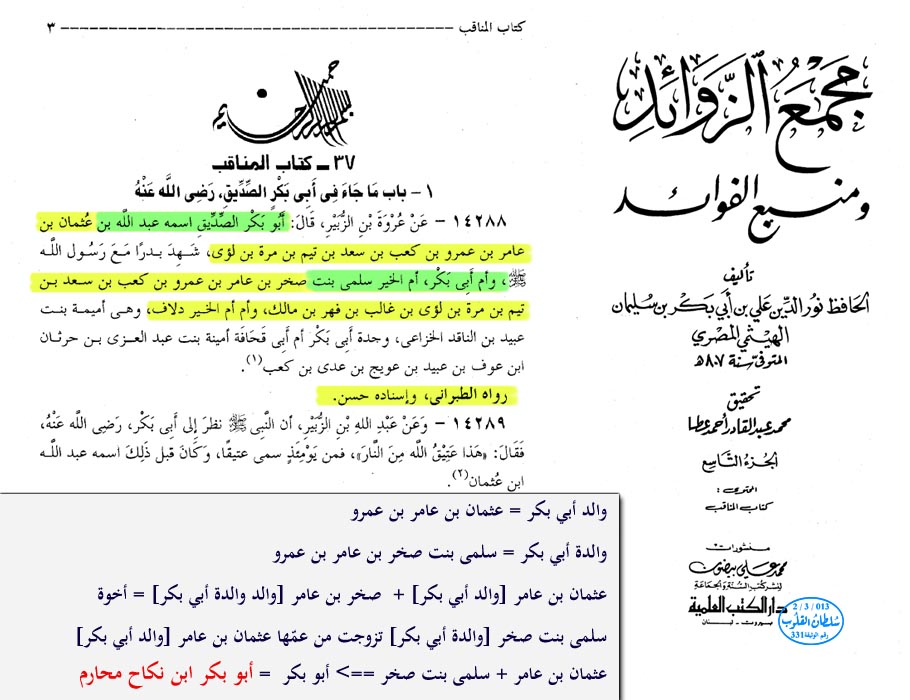 كتاب المناقب ـــــــــــــــــــــــــــــــــــــــــــــــــــــــــــــــــــــــــ ٣
بسم الله الرحمن الرحيم
٣٧ ــ كتاب المناقب
١ – باب مَا جَاءَ فِى أَبِى بَكْرٍ الصِّدِّيقِ، رَضِى اللَّه عَنْهُ
١٤٢٨٨ – عَنْ عُرْوَةَ بْنِ الزُّبَيْرِ، قَالَ: أَبُو بَكْر الصِّدِّيقِ اسمه عبد اللَّه بن عُثمان بن
عامر بن عمرو بن كعب بن سعد بن تيم بن مرة بن لؤى، شَهِدَ بدرًا مَعَ رَسُول اللَّه
ﷺ، وأم أَبِى بَكْر، أم الخير سلمى بنت صخر بن عامر بن عمرو بن كعب بن سعد بن
تيم بن مرة بن لؤى بن غالب بن فهر بن مالك، وأم أم الخير دلاف، وهى أميمة بنت
عبيد بن الناقد الخزاعى، وجدة أبى بكر أم أبى قحافة أمينة بنت عبد العزى بن حرثان
ابن عوف بن عبيد بن عويج بن عدى بن كعب(١).
رواه الطبرانى، وإسناده حسن.
١٤٢٨٩ – وَعَنْ عَبْدِ اللهِ بْنِ الزُّبَيْرِ، أن النَّبِى ﷺ نظرَ إلى أَبِى بَكْر، رَضِى اللَّه عَنْهُ،
فَقَالَ: «هَذا عَتِيْقُ اللَّه مِنَ النَّارِ»، فمن يَوْمِئذٍ سمى عتيقًا، وَكَانَ قبل ذَلِكَ اسمه عبد اللَّه
ابن عُثمان(٢).
مجمع الزوائد
ومنبع الفوائد
تأليف
الحافظ نور الدين علي بن أبي بكر بن سليمان
الهيثمي المصري
المتوفى سنة ٨٠٧ هـ
تحقيق
محمد عبد القادر أحمد عطا
الجزء التاسع
المحتوى :
كتاب المناقب
منشورات
محمد علي بيضون
لنشر كتب السنة والجماعة
دار الكتب العلمية
بيروت - لبنان
2 / 3 / 013
سلطان القلوب
رقم الوثيقة 331
والد أبي بكر = عثمان بن عامر بن عمرو
والدة أبي بكر = سلمى بنت صخر بن عامر بن عمرو
عثمان بن عامر [والد أبي بكر] + صخر بن عامر [والد والدة أبي بكر] = أخوة
سلمى بنت صخر [والدة أبي بكر] تزوجت من عمّها عثمان بن عامر [والد أبي بكر]
عثمان بن عامر + سلمى بنت صخر ==> أبو بكر = أبو بكر ابن نكاح محارم